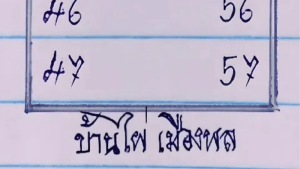 46 56
47 57
บ้านไผ่ เมืองพล